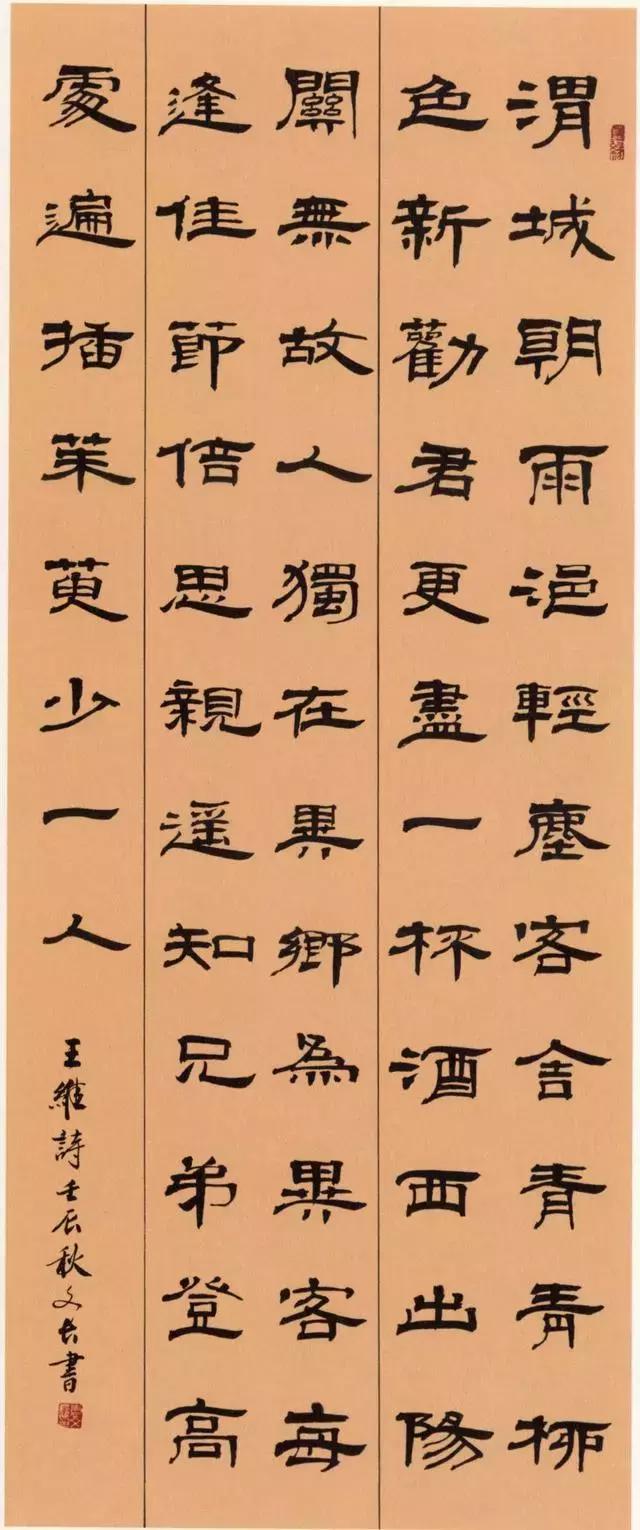 渭城朝雨浥輕塵客舍青青柳
色新勸君更盡一杯酒西出陽
關無故人獨在異鄉為異客每
逢佳節倍思親遥知兄弟登高
處遍插茱萸少一人
王維詩壬辰秋文长書